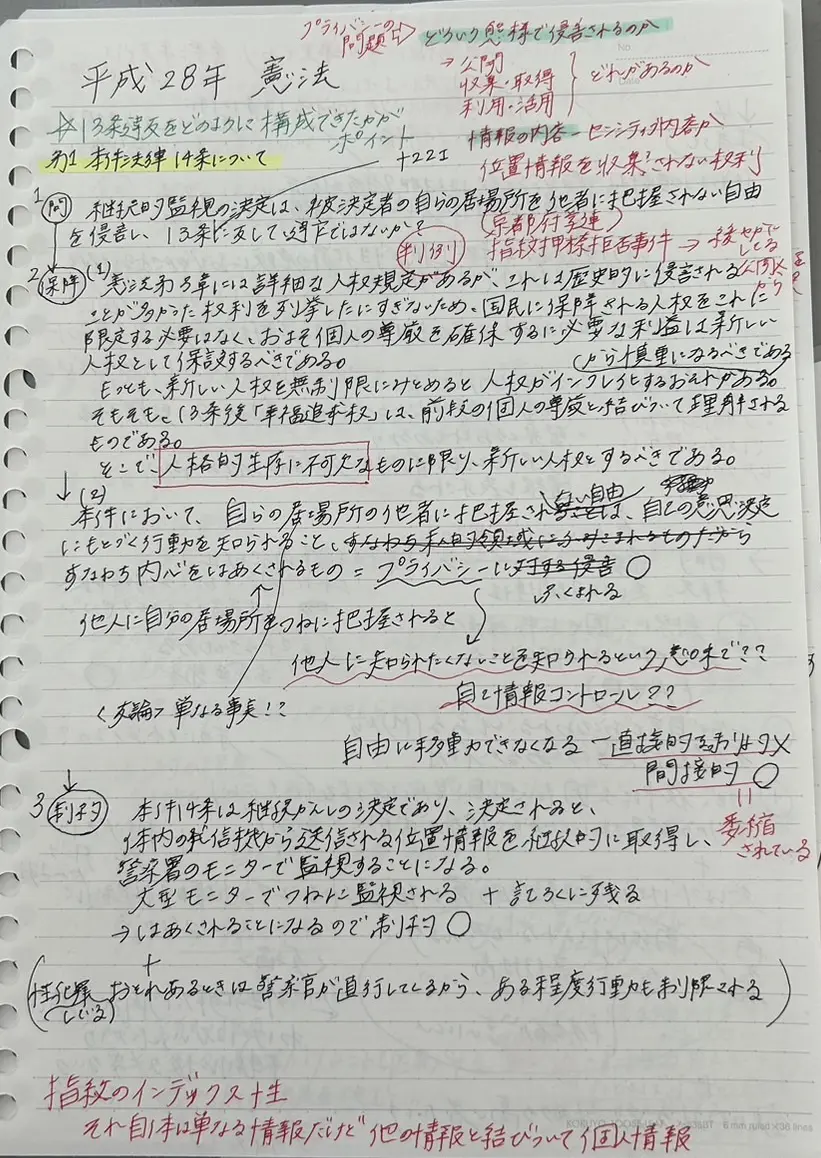 プライバシーの問題⇨ どういう態様で侵害されるのか
→公開
収集・取得
利用・活用
どれがあるのか
平成28年 憲法
☆13条違反をどのように構成できたかがポイント
情報の内容 - センシティブ内容か
第1 本件法律14条について
+22I
位置情報を収集されない権利
1 問 継続的監視の決定は、被決定者の自らの居場所を他者に把握されない自由
を侵害し、13条に反して違憲ではないか?
(京都府学連)
判例 指紋押捺拒否事件 →
2 保障 (1) 憲法第3章には詳細な人権規定があるが、これは歴史的に侵害される
ことが多かった権利を列挙したにすぎないため、国民に保障される人権をこれに
限定する必要はなく、およそ個人の尊厳を確保するに必要な利益は新しい
人権として保護するべきである。
(から慎重になるべきである
もっとも、新しい人権を無制限にみとめると人権がインフレ化するおそれがある。
そもそも、13条後「幸福追求権」は、前段の個人の尊厳と結びついて理解される
ものである。
そこで、人格的生存に不可欠なものに限り、新しい人権とするべきである。
↓ (2)
本件において、自らの居場所の他者に把握されない自由は、自己の意思決定
にもとづく行動を知られること、すなわち私的領域に
すなわち内心をはあくされるもの = プライバシーに対する侵害 ○
ふくまれる
他人に自分の居場所をつねに把握されると
他人に知られたくないことを知られるという意味で??
自己情報コントロール??
〈反論〉単なる事実!?
自由に移動できなくなる - 直接的
間接的 ○
=
萎縮
されている
3 制約 本件14条は継続かんしの決定であり、決定されると、
体内の発信機から送信される位置情報を継続的に取得し、
警察署のモニターで監視することになる。
大型モニターでつねに監視される + 記ろくに残る
⇒はあくされることになるので制約 ○
+
(性犯罪 おそれあるときは警察官が直行してくるから、ある程度行動も制限される)
指紋のインデックス性
それ自体は単なる情報だけど他の情報と結びついて個人情報